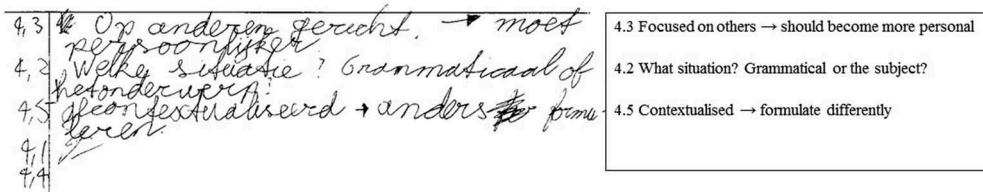 4,3 Op anderen gericht. → moet
persoonlijker
4,2 Welke situatie? Grammaticaal of
het onderwerp?
4,5 gecontextualiseerd → anders formu
leren.
4,1
4,4
4.3 Focused on others → should become more personal
4.2 What situation? Grammatical or the subject?
4.5 Contextualised → formulate differently